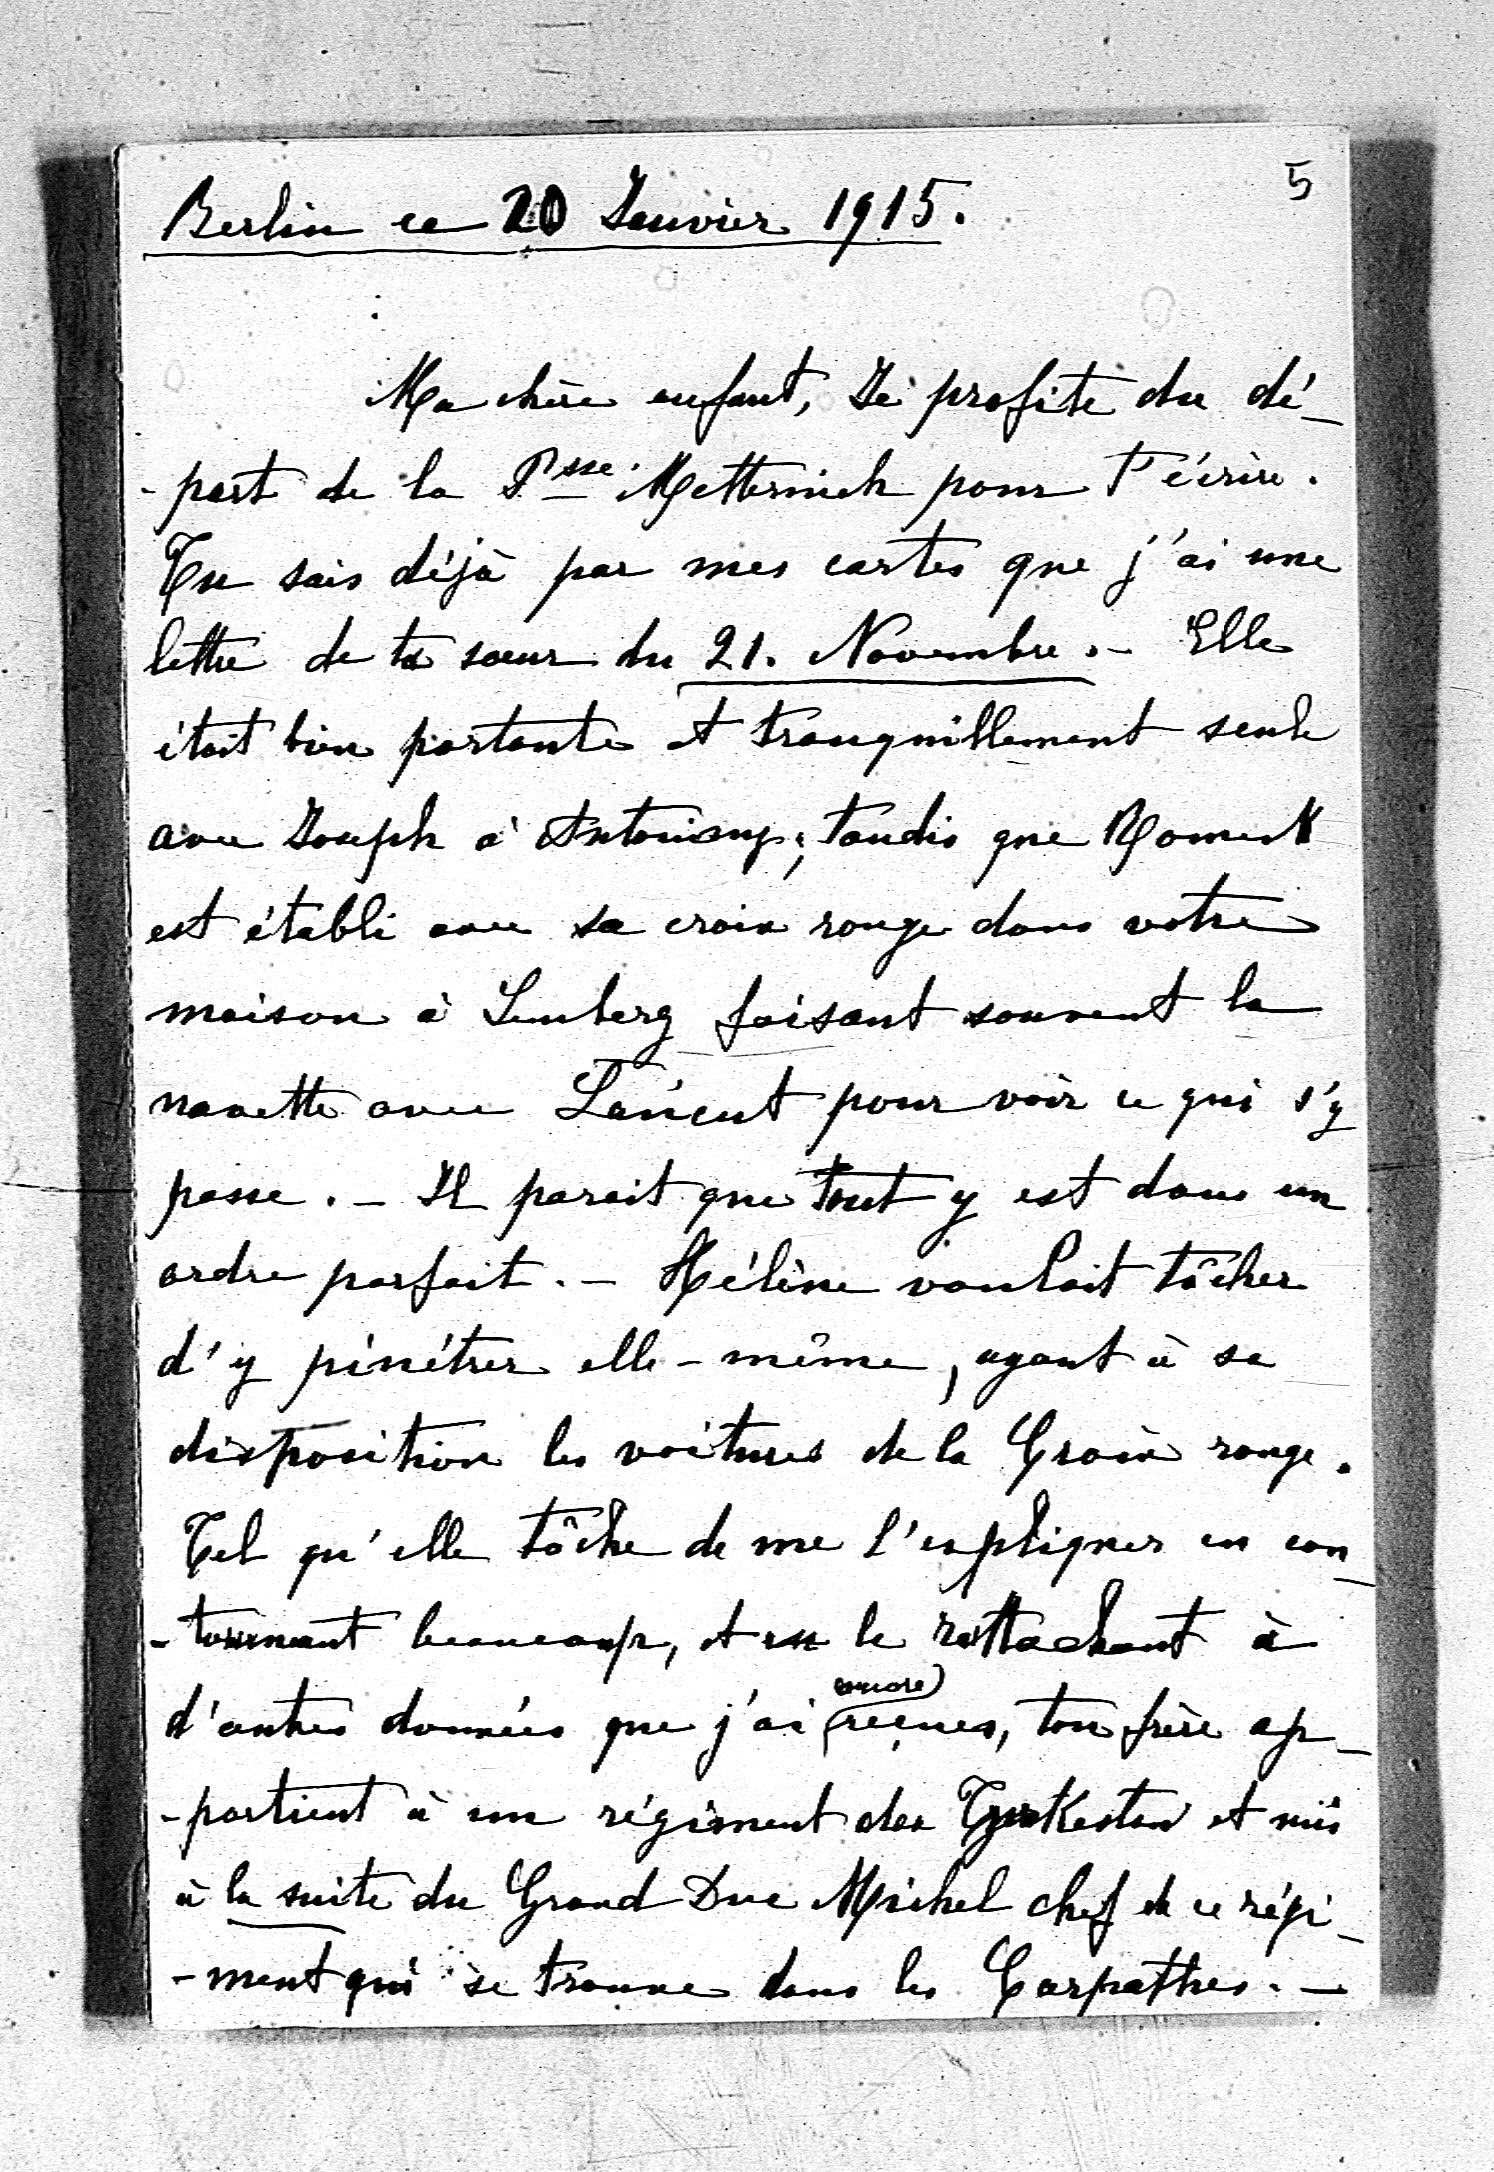 5
Berlin ce 20 Janvier 1915.
Ma chère enfant, Je profite du dé-
-part de la Psse. Metternich pour t'écrire.
Tu sais déjà par mes cartes que j'ai une
lettre de ta sœur du 21. Novembre. - Elle
était bien portante et tranquillement seule
avec Joseph à Antoniny; tandis que
est établi avec sa croix rouge dans votre
maison à Lemberg faisant souvent la
navette avec Łańcut pour voir ce qui s'y
passe. - Il parait que tout y est dans un
ordre parfait. - Hélène voulait tâcher
d'y pénétrer elle-même, ayant à sa
disposition les voitures de la Croix rouge.
Tel qu'elle tâche de me l'expliquer en con-
-tournant beaucoup, et en le rattachant à
d'autres données que j'ai encore reçues, ton frère ap-
-partient à un régiment des et mis
à la suite du Grand Duc Michel chef de ce régi-
-ment qui se trouve dans les Carpathes. -